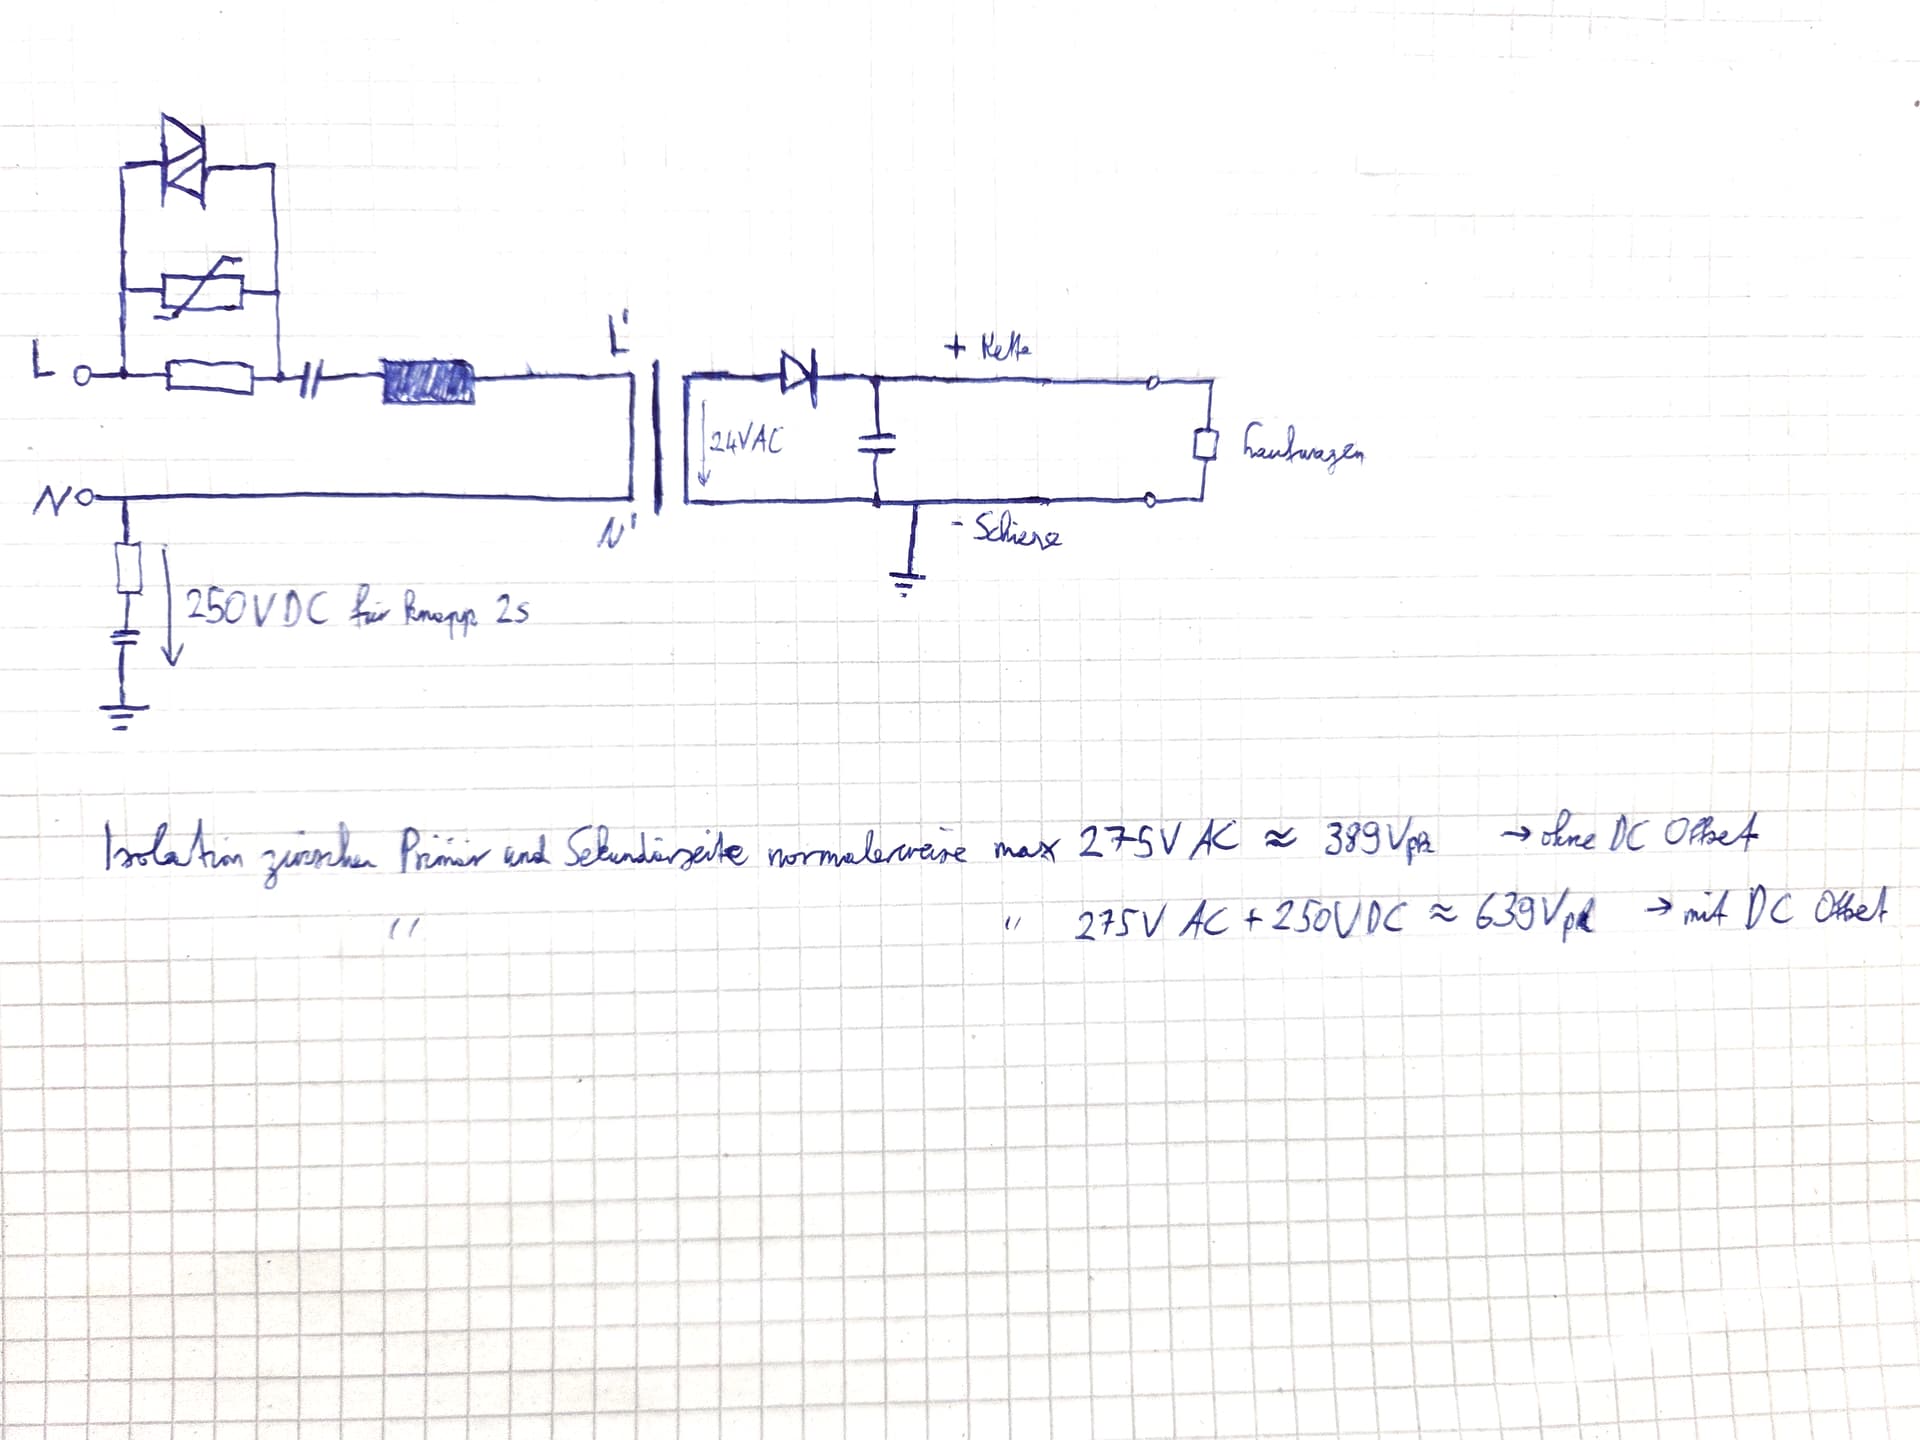 L'
+ Kette
L
24VAC
Laufwagen
N
N'
- Schiene
250V DC für knapp 2s
Isolation zwischen Primär und Sekundärseite normalerweise max 275V AC ≈ 389Vpk → ohne DC Offset
" " 275V AC + 250VDC ≈ 639Vpk → mit DC Offset